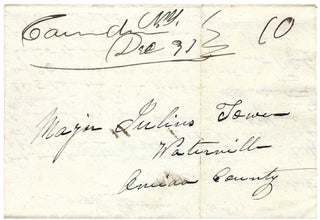 Camden N.Y. 10
Dec 31
Major Julius Tower
Waterville
Oneida County